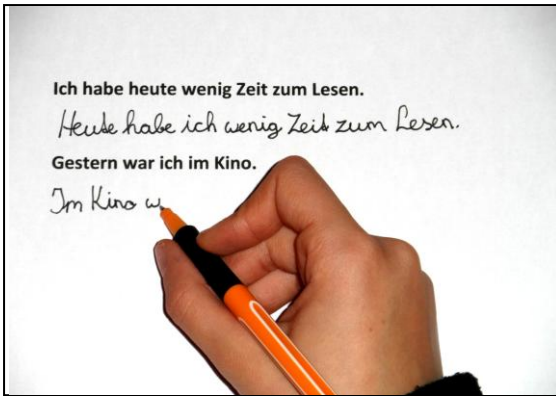 Ich habe heute wenig Zeit zum Lesen.
Heute habe ich wenig Zeit zum Lesen.
Gestern war ich im Kino.
Im Kino w